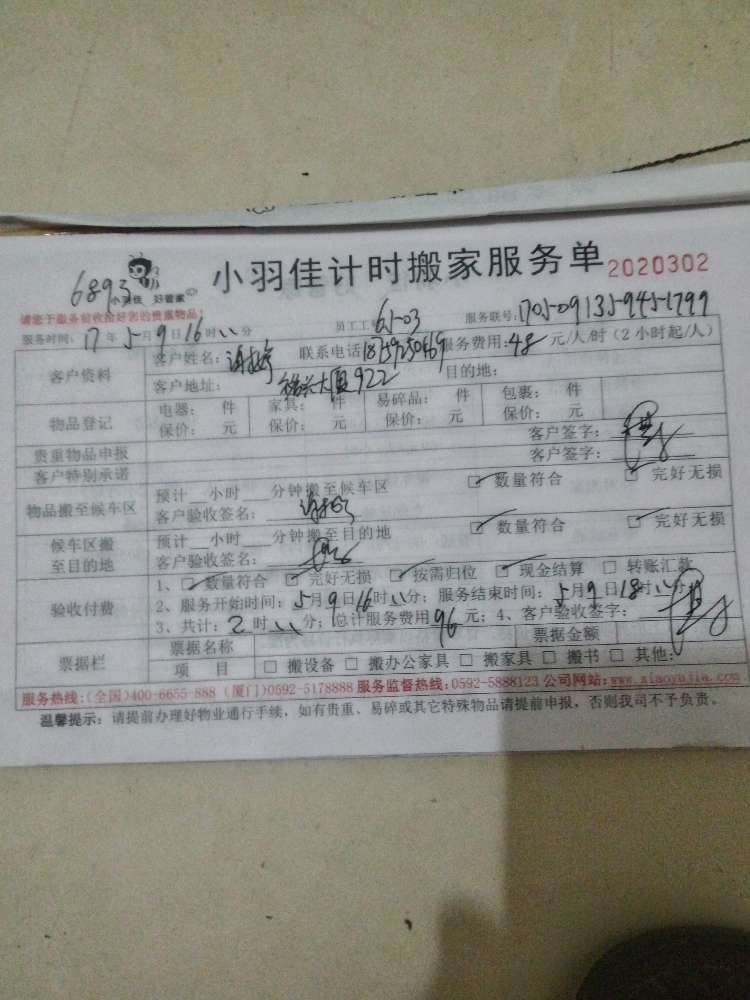 6893
小羽佳 好管家
小羽佳计时搬家服务单 2020302
请您于服务前收捡好您的贵重物品！
服务时间: 17 年 5 月 9 日 16 时 分 员工工号: 61-03 服务联号:
客户资料 客户姓名: 联系电话 服务费用: 48 元/人/时 (2小时起/人)
客户地址: 922 目的地:
物品登记 电器: 件 家具: 件 易碎品: 件 包裹: 件
保价: 元 保价: 元 保价: 元 保价: 元
贵重物品申报 客户签字:
客户特别承诺 客户签字:
物品搬至候车区 预计 小时 分钟搬至候车区 数量符合 完好无损
客户验收签名:
候车区搬至目的地 预计 小时 分钟搬至目的地 数量符合 完好无损
客户验收签名:
验收付费 1、 数量符合 完好无损 按需归位 现金结算 转账汇款
2、服务开始时间: 5 月 9 日 16 时 分; 服务结束时间: 5 月 9 日 18 时 分
3、共计: 2 时 分; 总计服务费用 96 元; 4、客户验收签字:
票据栏 票据名称 票据金额
项 目 搬设备 搬办公家具 搬家具 搬书 其他:
服务热线:(全国)400-6655-888 (厦门)0592-5178888 服务监督热线:0592-5888123 公司网站:www.xiaoyujia.com
温馨提示: 请提前办理好物业通行手续，如有贵重、易碎或其它特殊物品请提前申报，否则我司不予负责。